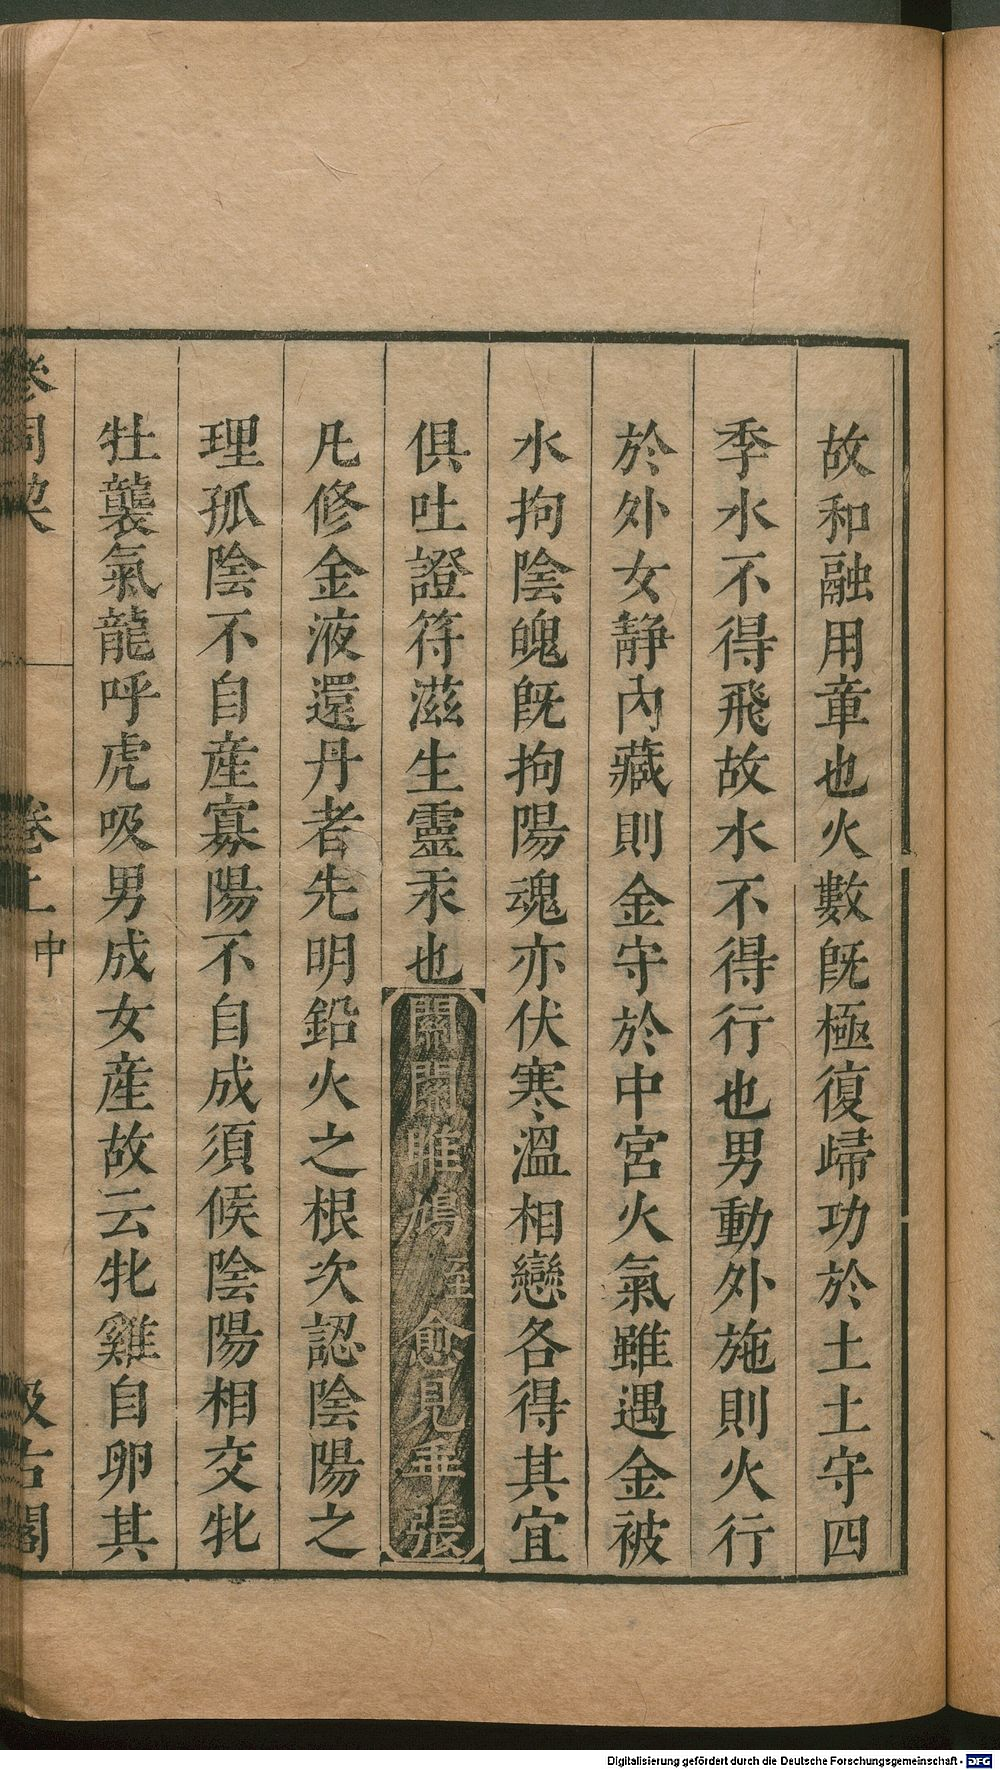 故和融用章也火數既極復歸功於土土守四
季水不得飛故水不得行也男動外施則火行
於外女靜內藏則金守於中宮火氣雖遇金被
水拘陰魄既拘陽魂亦伏寒溫相戀各得其宜
俱吐證符滋生靈汞也關關雎鳩至愈見乖張
凡修金液還丹者先明鉛火之根次認陰陽之
理孤陰不自産寡陽不自成須候陰陽相交牝
牡襲氣龍呼虎吸男成女産故云牝雞自卵其
參同契 卷上 中 汲古閣
Digitalisierung gefördert durch die Deutsche Forschungsgemeinschaft - DFG